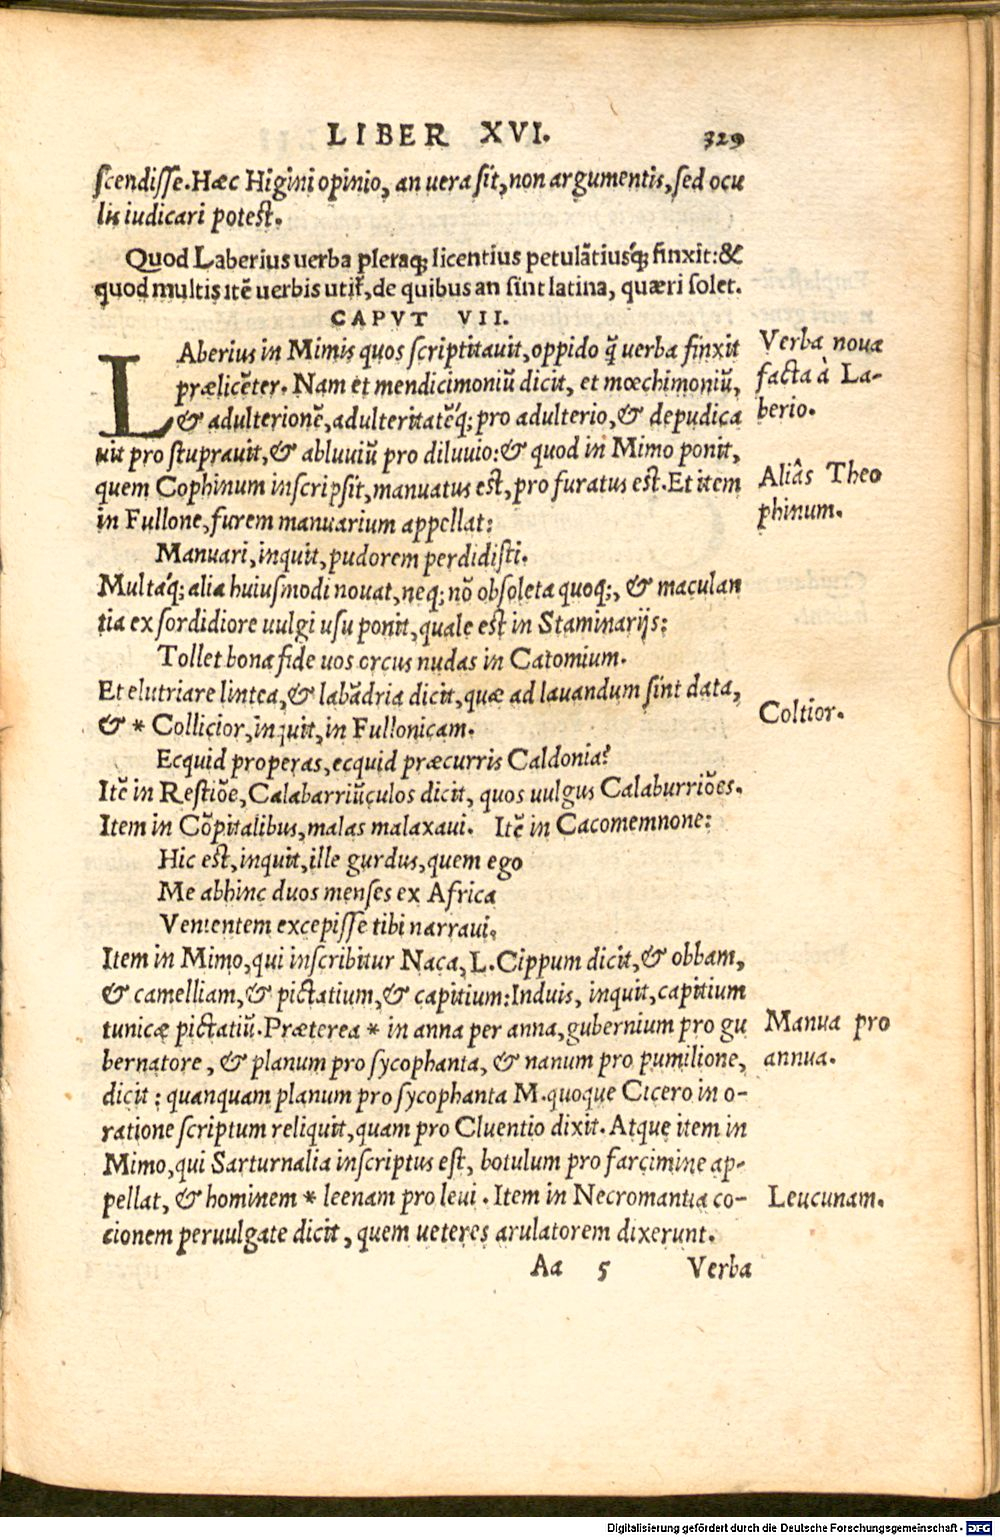 LIBER XVI. 329
scendisse. Hæc Higini opinio, an uera sit, non argumentis, sed ocu
lis iudicari potest.
Quod Laberius uerba pleraq; licentius petulãtiusq́; finxit: &
quod multis itẽ uerbis utit̃, de quibus an sint latina, quæri solet.
CAPVT VII.
LAberius in Mimis quos scriptitauit, oppido q̃ uerba finxit
Verba noua
prælicẽter. Nam et mendicimoniũ dicit, et mœchimoniũ,
facta à La-
& adulterionẽ, adulteritatẽq́; pro adulterio, & depudica
berio.
uit pro stuprauit, & abluuiũ pro diluuio: & quod in Mimo ponit,
quem Cophinum inscripsit, manuatus est, pro furatus est. Et item
Aliâs Theo
in Fullone, furem manuarium appellat:
phinum.
Manuari, inquit, pudorem perdidisti.
Multaq́; alia huiusmodi nouat, neq; nõ obsoleta quoq;, & maculan
tia ex sordidiore uulgi usu ponit, quale est in Staminarijs:
Tollet bona fide uos orcus nudas in Catomium.
Et elutriare lintea, & labãdria dicit, quæ ad lauandum sint data,
& * Collicior, inquit, in Fullonicam.
Coltior.
Ecquid properas, ecquid præcurris Caldonia?
Itẽ in Restiõe, Calabarriũculos dicit, quos uulgus Calaburriões.
Item in Cõpitalibus, malas malaxaui. Itẽ in Cacomemnone:
Hic est, inquit, ille gurdus, quem ego
Me abhinc duos menses ex Africa
Venientem excepisse tibi narraui.
Item in Mimo, qui inscribitur Naca, L. Cippum dicit, & obbam,
& camelliam, & pictatium, & capitium: Induis, inquit, capitium
tunicæ pictatiũ. Præterea * in anna per anna, gubernium pro gu
Manua pro
bernatore, & planum pro sycophanta, & nanum pro pumilione,
annua.
dicit: quanquam planum pro sycophanta M. quoque Cicero in o-
ratione scriptum reliquit, quam pro Cluentio dixit. Atque item in
Mimo, qui Sarturnalia inscriptus est, botulum pro farcimine ap-
pellat, & hominem * leenam pro leui. Item in Necromantia co-
Leucunam.
cionem peruulgate dicit, quem ueteres arulatorem dixerunt.
Aa 5 Verba
Digitalisierung gefördert durch die Deutsche Forschungsgemeinschaft - DFG